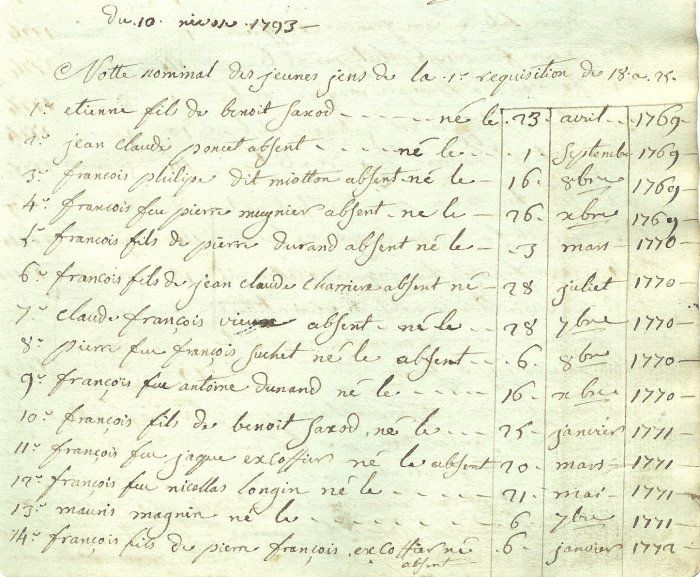 du 10 nivose 1793 -
Notte nominal des jeunes jens de la 1e requisition de 18 a 25-
1e etienne fils de benoit saxod - - - - - - né le - 23 - avril - - 1769 -
2e jean claude poncet absent - - - - - - né le - - - 1 - Septembre 1769
3e françois philipe dit miotton absent né le - 16 - 8bre 1769
4e françois feu pierre mugnier absent - ne le - 26 - xbre 1769
5e françois fils de pierre durand absent né le - - 3 mars - 1770
6e françois fils de jean claude charriere absent né - 28 juliet 1770 -
7e claude françois absent - né le - - 28 7bre 1770 -
8e pierre feu françois suchet né le absent - - 6 - 8bre 1770 -
9e françois feu antoine dunand né le - - - - 16 - xbre 1770 -
10e françois fils de benoit saxod, né le - - - 25 - janvier 1771 -
11e françois feu jaque excoffier né le absent 20 - mars - 1771
12e françois feu nicollas longin né le - - - - - 21 - mai - - 1771
13e mauris magnin né le - - - - - - - - - 6 - 7bre 1771 -
14e françois fils de pierre françois excoffier né 6 - janvier 1772
absent